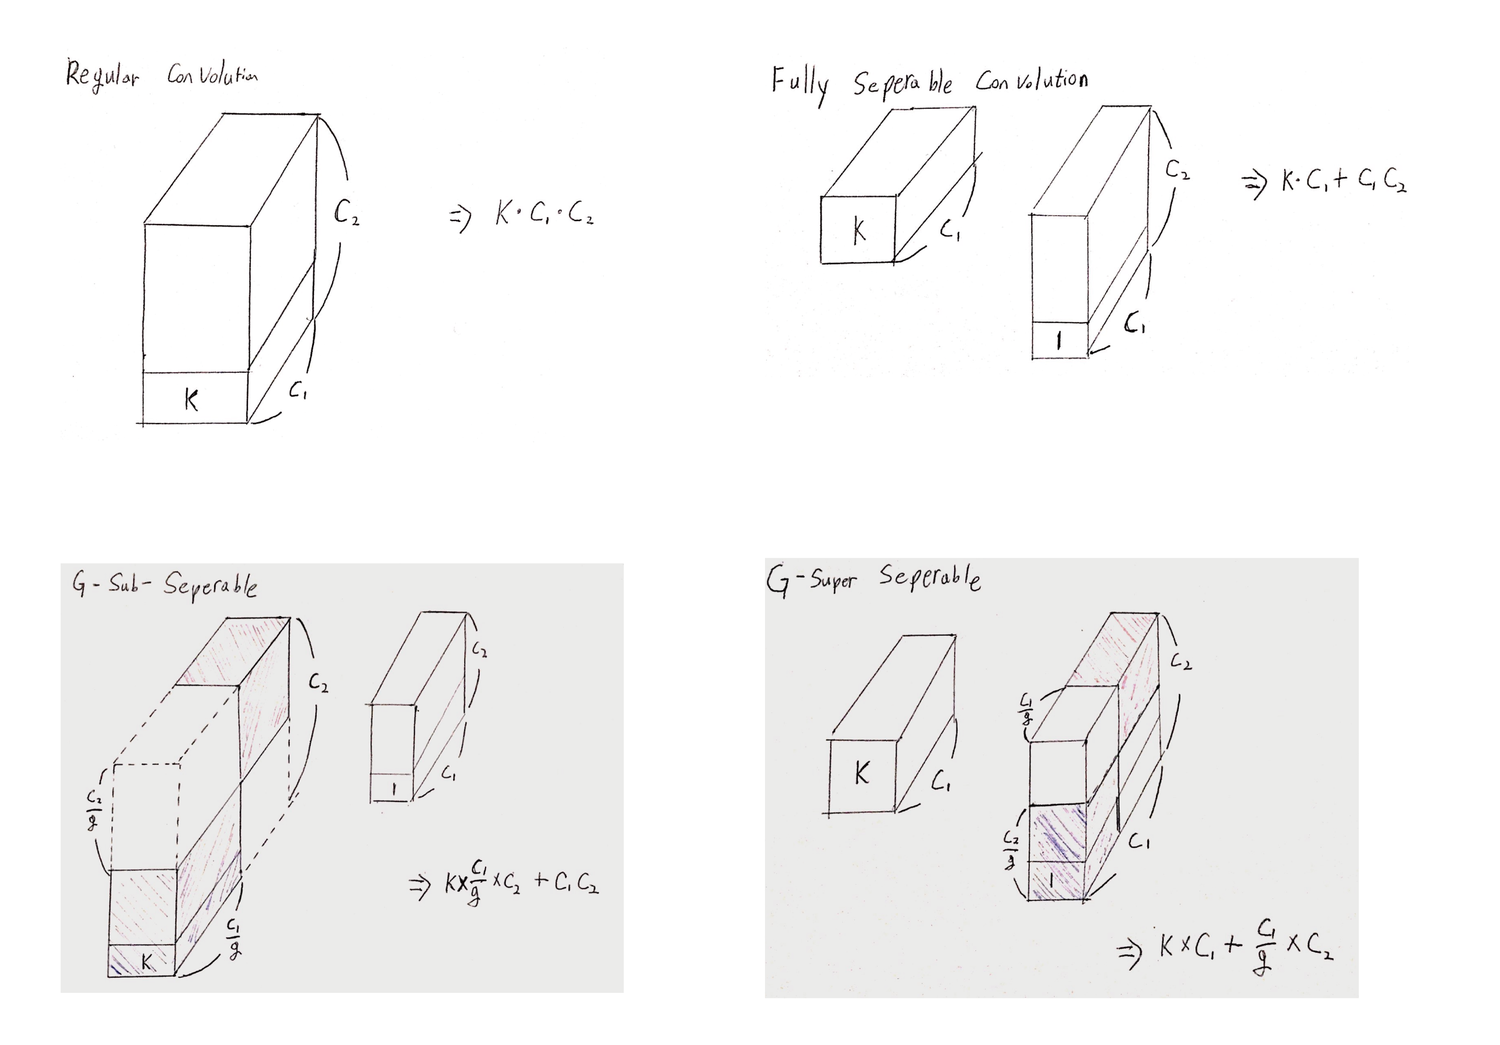 Regular Convolution
C₂
⇒ K・C₁・C₂
K
C₁
Fully Seperable Convolution
K
C₁
C₂
C₁
1
⇒ K・C₁ + C₁C₂
G-Sub-Seperable
C₂
C₂/g
K
C₁/g
C₂
C₁
1
⇒ K×C₁/g×C₂ + C₁C₂
G-Super Seperable
K
C₁
C₁/g
C₂
C₂/g
C₁
1
⇒ K×C₁ + C₁/g ×C₂